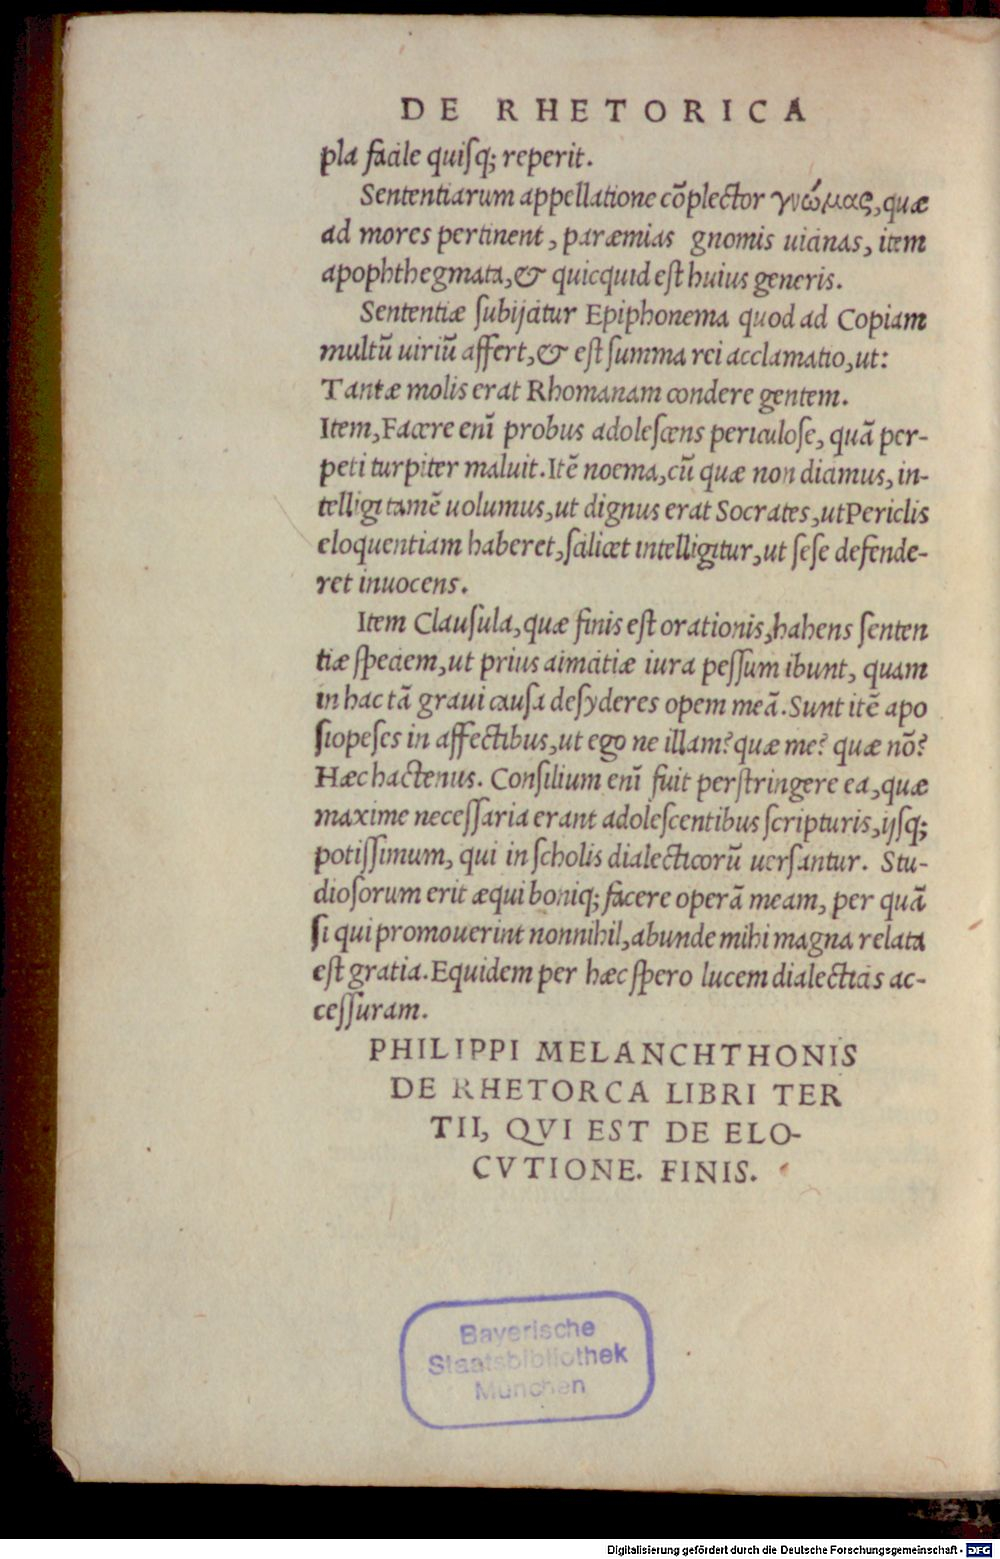 DE RHETORICA
pla facile quiſq; reperit.
Sententiarum appellatione cõplector γνώμας, quæ
ad mores pertinent, paræmias gnomis uicinas, item
apophthegmata, & quicquid eſt huius generis.
Sententiæ ſubijcitur Epiphonema quod ad Copiam
multũ uiriũ affert, & eſt ſumma rei acclamatio, ut:
Tantæ molis erat Rhomanam condere gentem.
Item, Facere enĩ probus adoleſcens periculoſe, quã per-
peti turpiter maluit. Itẽ noema, cũ quæ non dicimus, in-
telligi tamẽ uolumus, ut dignus erat Socrates, ut Periclis
eloquentiam haberet, ſcilicet intelligitur, ut ſeſe defende-
ret inuocens.
Item Clauſula, quæ finis eſt orationis, habens ſenten
tiæ ſpeciem, ut prius aimcitiæ iura peſſum ibunt, quam
in hac tã graui cauſa deſyderes opem meã. Sunt itẽ apo
ſiopeſes in affectibus, ut ego ne illam? quæ me? quæ nõ?
Hæc hactenus. Conſilium enĩ fuit perſtringere ea, quæ
maxime neceſſaria erant adoleſcentibus ſcripturis, ijſq;
potiſſimum, qui in ſcholis dialecticorũ uerſantur. Stu-
dioſorum erit æqui boniq; facere operã meam, per quã
ſi qui promouerint nonnihil, abunde mihi magna relata
eſt gratia. Equidem per hæc ſpero lucem dialecticis ac-
ceſſuram.
PHILIPPI MELANCHTHONIS
DE RHETORCA LIBRI TER
TII, QVI EST DE ELO-
CVTIONE. FINIS.
Bayerische
Staatsbibliothek
München
Digitalisierung gefördert durch die Deutsche Forschungsgemeinschaft - DFG